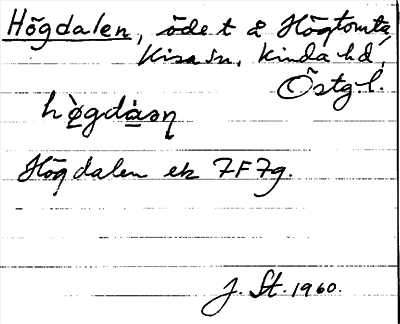 Högdalen, öde t å Högtomta,
Kisa sn, Kinda hd,
Östgl.
hø̀gdàən
Högdalen ek 7F7g.
J. St. 1960.